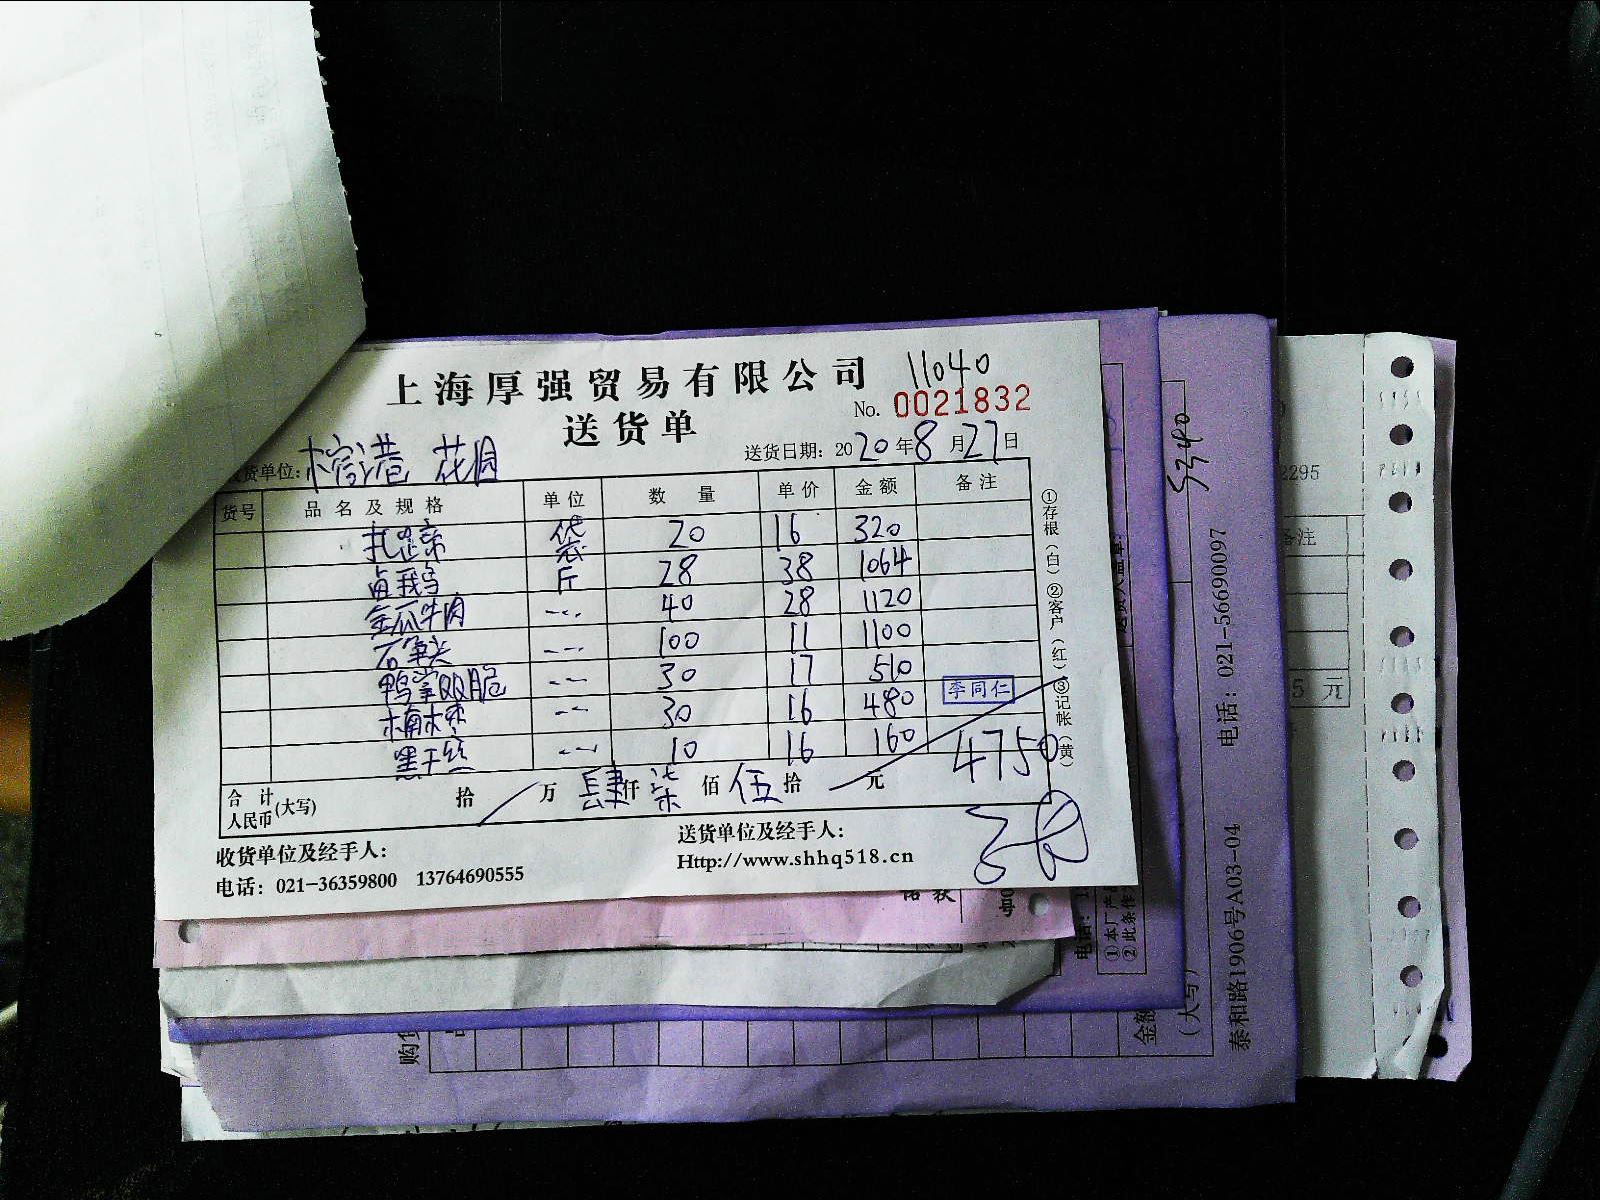 上海厚强贸易有限公司 11040
送货单 No. 0021832
货单位: 港 花园 送货日期: 2020年8月27日
货号 品名及规格 单位 数量 单价 金额 备注
扎蹄 袋 20 16 320
卤鹅 斤 28 38 1064
金瓜牛肉 40 28 1120
100 11 1100
鸭掌QQ脆 30 17 510
30 16 480 李同仁
黑干丝 10 16 160
4750
合计人民币(大写) 拾 万 肆仟 柒佰 伍拾 元
收货单位及经手人: 送货单位及经手人:
电话: 021-36359800 13764690555 Http://www.shhq518.cn
①存根(白) ②客户(红) ③记帐(黄)
5340
电话: 021-56690097
泰和路1906号A03-04
2295
备注
5 元
购
金额
(大写)
电话:
①本厂产
②此条作
每